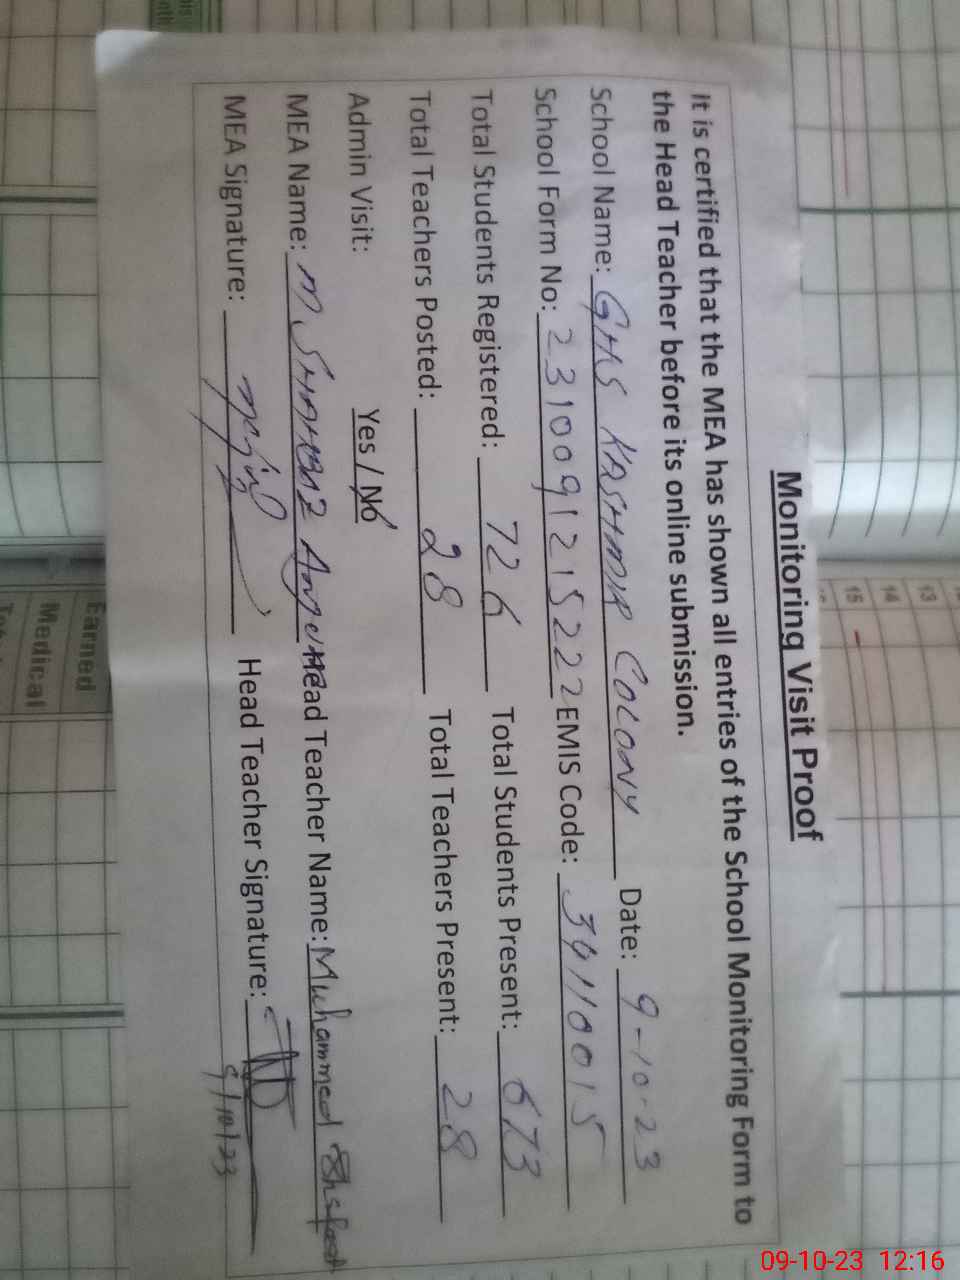 Monitoring Visit Proof
It is certified that the MEA has shown all entries of the School Monitoring Form to
the Head Teacher before its online submission.
School Name: GHS KASHMIR COLONY Date: 9-10-23
School Form No: 2310091215222 EMIS Code: 34110015
Total Students Registered: 726 Total Students Present: 673
Total Teachers Posted: 28 Total Teachers Present: 28
Admin Visit: Yes / No
MEA Name: M SHAHBAZ Head Teacher Name: Muhammed
MEA Signature: Head Teacher Signature:
9/10/23
Earned
Medical
13
14
15
09-10-23 12:16